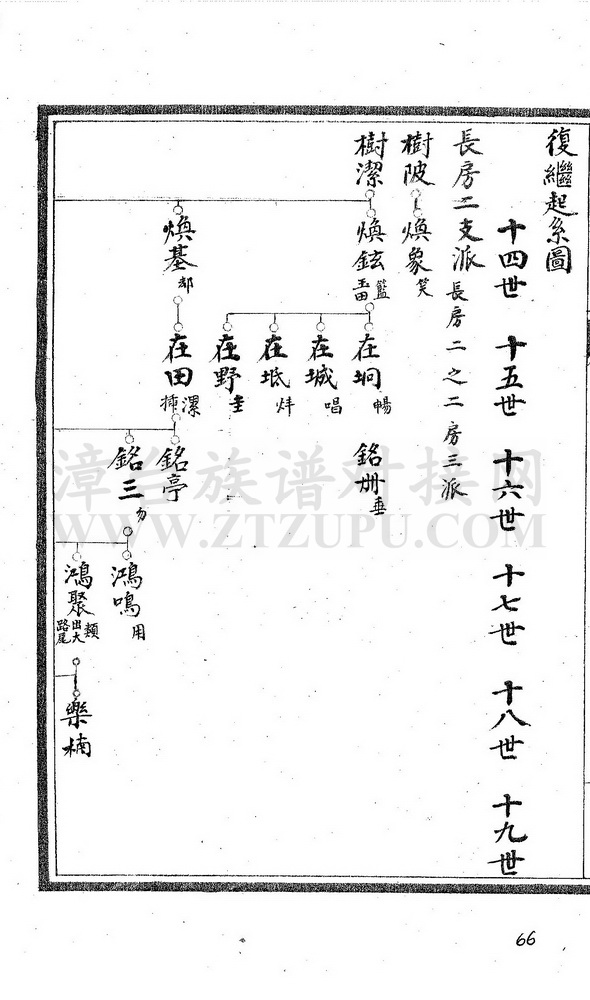 復繼起系圖
十四世 十五世 十六世 十七世 十八世 十九世
長房二支派 長房二之二房三派
樹陂 煥象 笑
樹潔 煥鉉 玉田 籃
在坰 暢
銘册 垂
在城 唱
在坻
在野 圭
煥基 却
在田 漯
銘亭
銘三 勿
鴻鳴 用
鴻聚 出大路尾 類
樂楠
漳台族谱对接网
WWW.ZTZUPU.COM
66